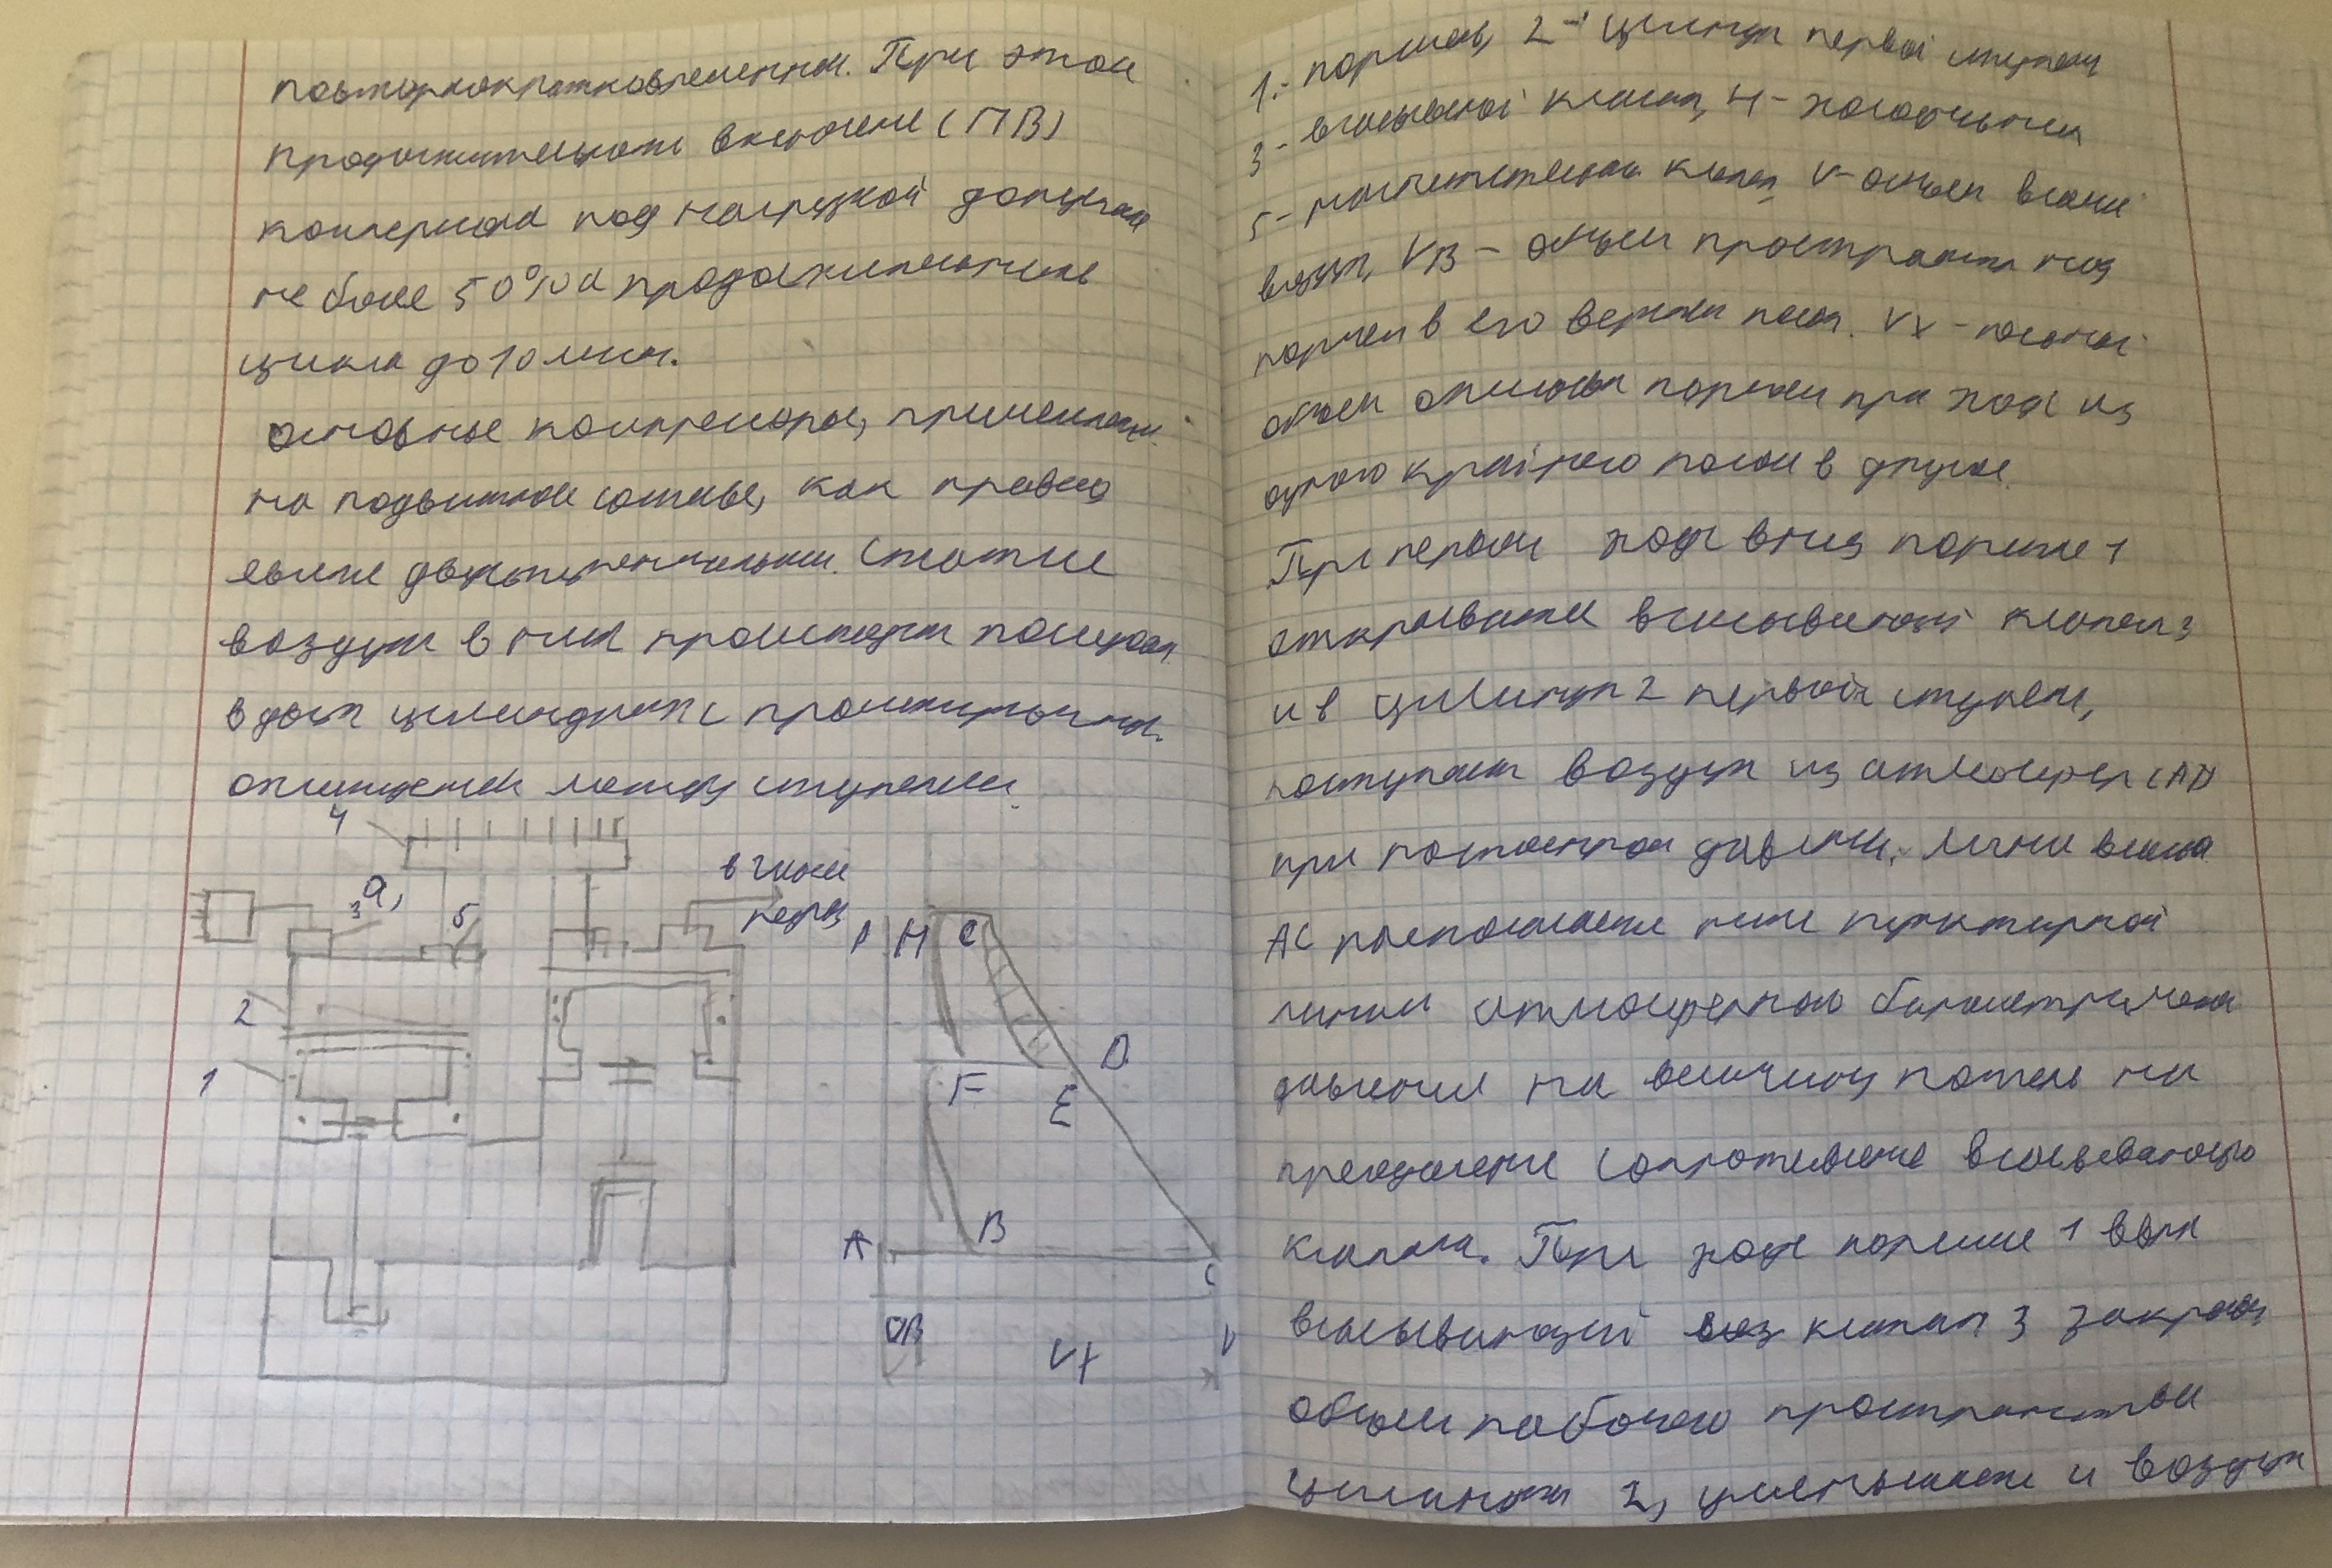 повторнократковременном. При этом
продолжительность включение (ПВ)
компрессора под нагрузкой допускае
не более 50% а продолжительность
цикла до 10 мин.
основные компрессоры, применяемы
на подвижном составе, как правило
явлие двухступенчатыми. Сжатие
воздуха в них происходит последов
в двух цилиндрах с промежуточны.
охлаждением между ступенями.
4
в глав
резер
3
а,
5
2
1
P
H
C
D
F
E
A
B
C
OB
Vх
V
1 - поршень, 2 - цилиндр первой ступени
3 - всасывающ клапан, 4 - холодильник
5 - нагнетательн клапан, V - объем всасыв
воздух, VB - объем пространств над
поршнем в его верхнем полож. Vx - полный
объем описыва поршнем при ходе из
одного крайнего полож в другое.
При первом ходе вниз поршне 1
открывается всасывающий клапан 3
и в цилиндр 2 первой ступени,
поступает воздух из атмосферы (АД
при постоянном давлени. Линия всасыв
АС располагается ниже пунктирной
линии атмосферного барометрическ
давления на величину потерь на
преодоление сопротивление всасывающего
клапана. При ходе поршне 1 вверх
всасывающий клапан 3 закрыва
объем рабочего пространства
цилиндра 2, уменьшается и воздух